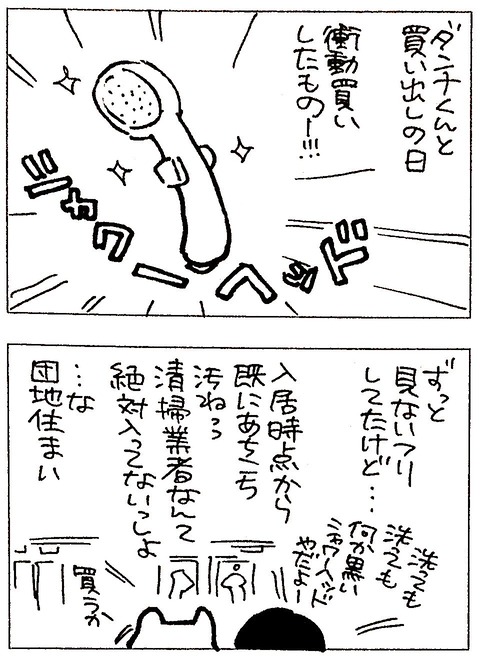 ダンチくんと
買い出しの日
衝動買い
したものー!!!
シャワーヘッド
ずっと
見ないフリ
してたけど…
洗っても
洗っても
何か黒い
シャワーヘッド
やだよー
入居時点から
既にあちこち
汚ねぇ
清掃業者なんて
絶対入ってないっしょ
…な
団地住まい
買うか